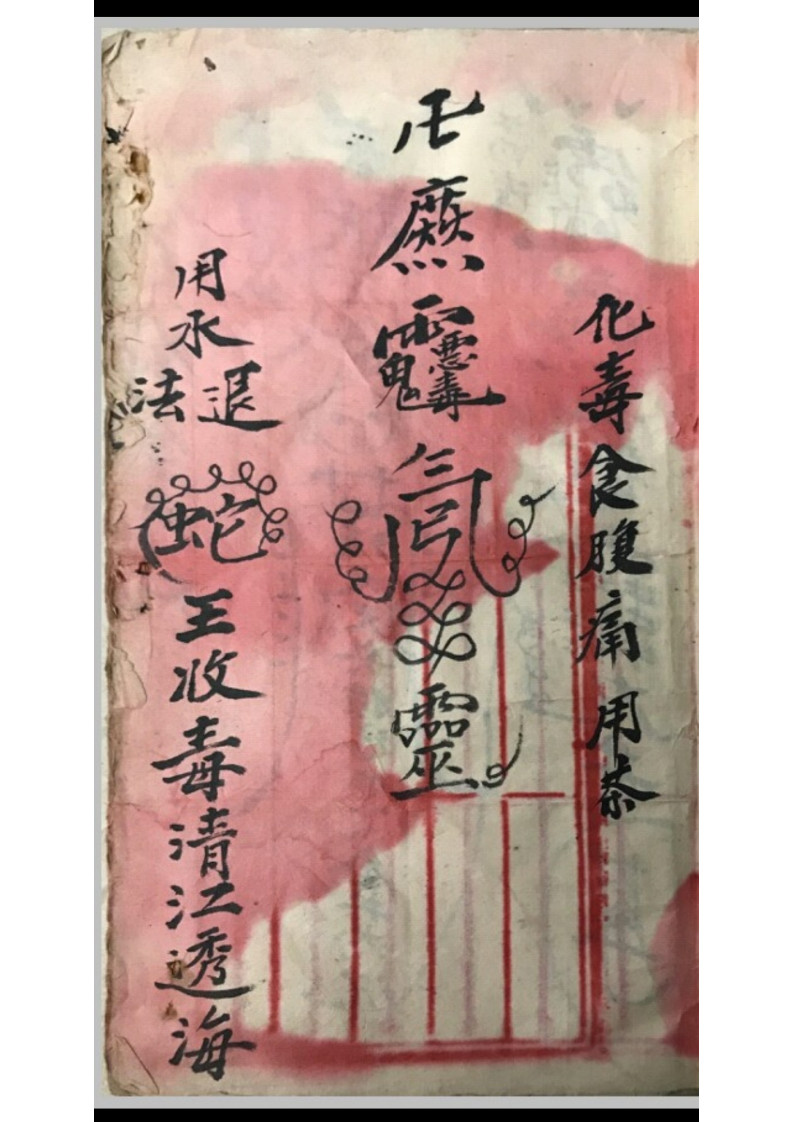 化毒食腹痛用茶
卍 靈
用水退法
蛇王收毒清江透海